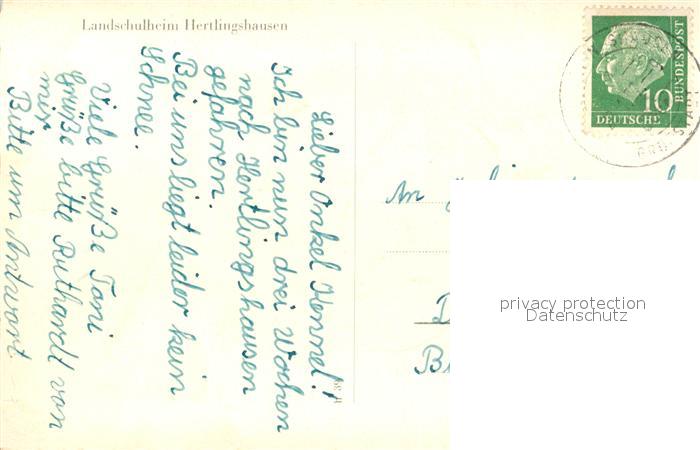 Landschulheim Hertlingshausen
Lieber Onkel Hennel!
Ich bin nun drei Wochen
nach Hertlingshausen
gefahren.
Bei uns liegt leider kein
Schnee.
Viele Grüße Toni
Grüße bitte Ruthardt von
mir
Bitte um Antwort
10
DEUTSCHE
BUNDESPOST
An
privacy protection
Datenschutz